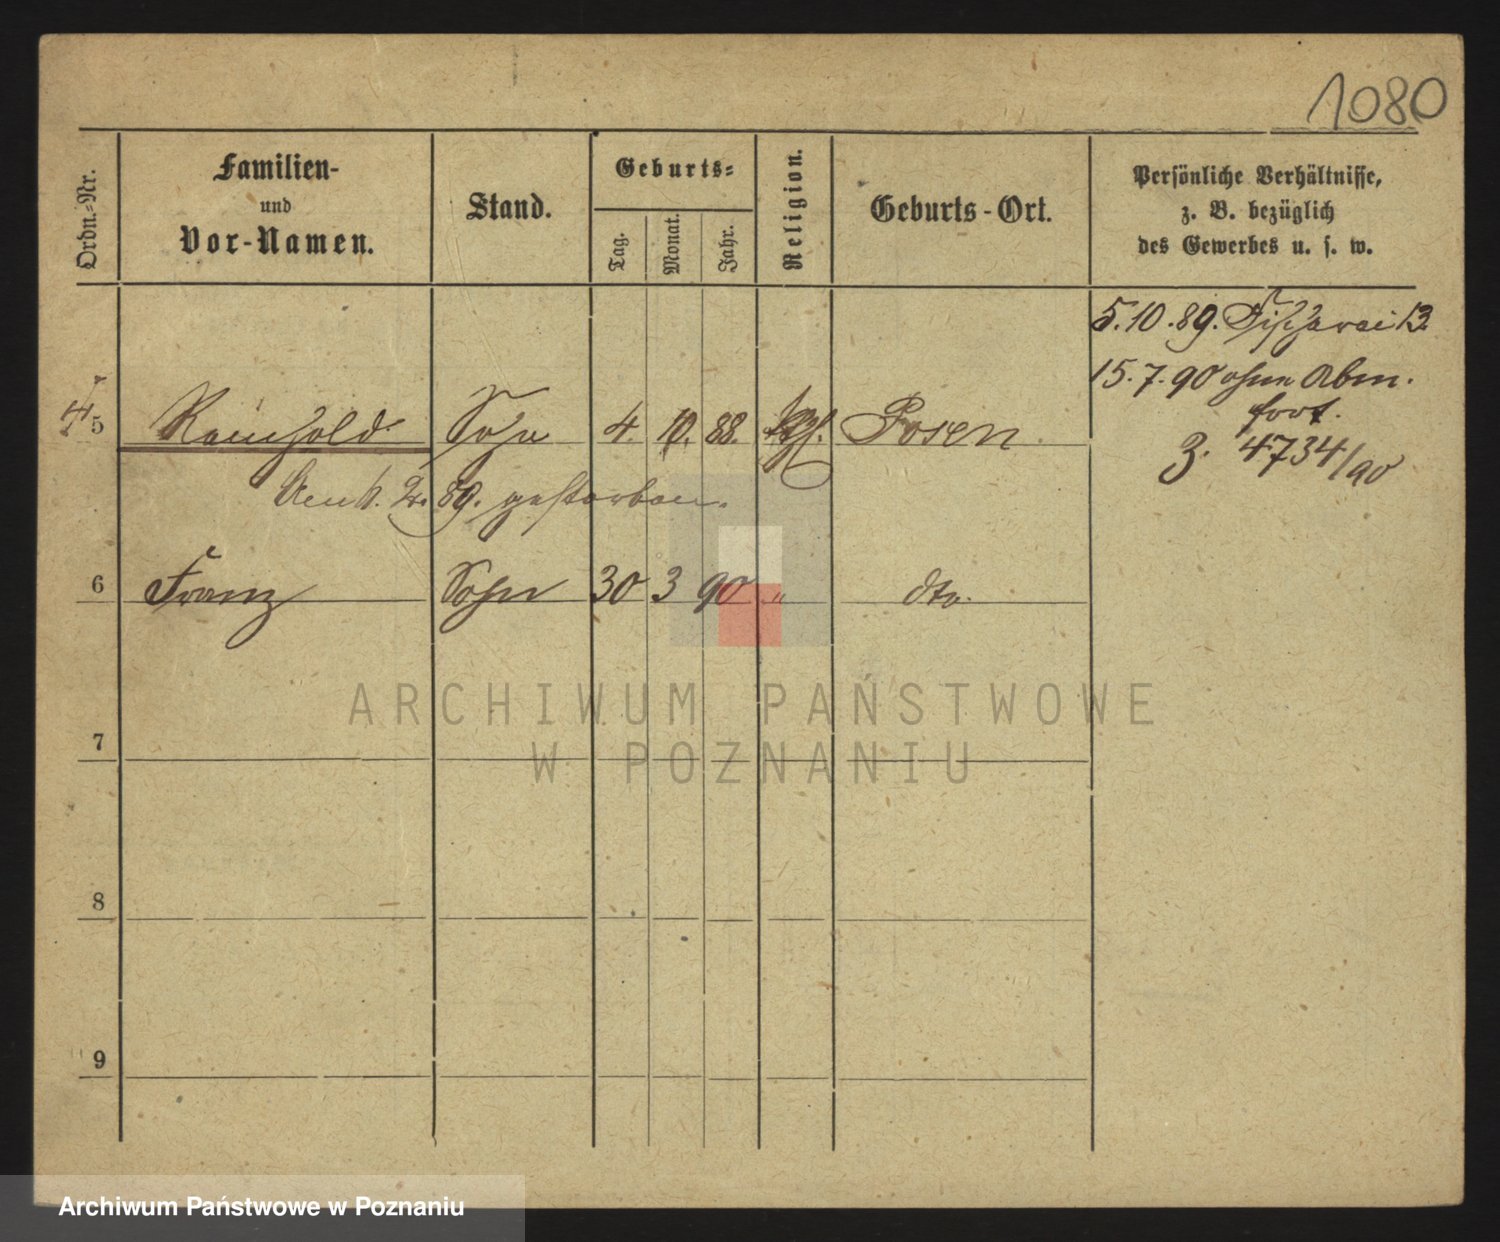 1080
Ordn.-Nr.
Familien-
und
Vor-Namen.
Stand.
Geburts-
Tag.
Monat.
Jahr.
Religion.
Geburts-Ort.
Persönliche Verhältnisse,
z. B. bezüglich
des Gewerbes u. s. w.
5.10.89. Fischerei 13
15.7.90 ohne Abm.
fort.
3. 4734/90
5 Reinhold Sohn 4. 10. 88. Posen
2. 89. gestorben.
6 Franz Sohn 30 3 90 " dto.
ARCHIWUM PAŃSTWOWE
W POZNANIU
7
8
9
Archiwum Państwowe w Poznaniu